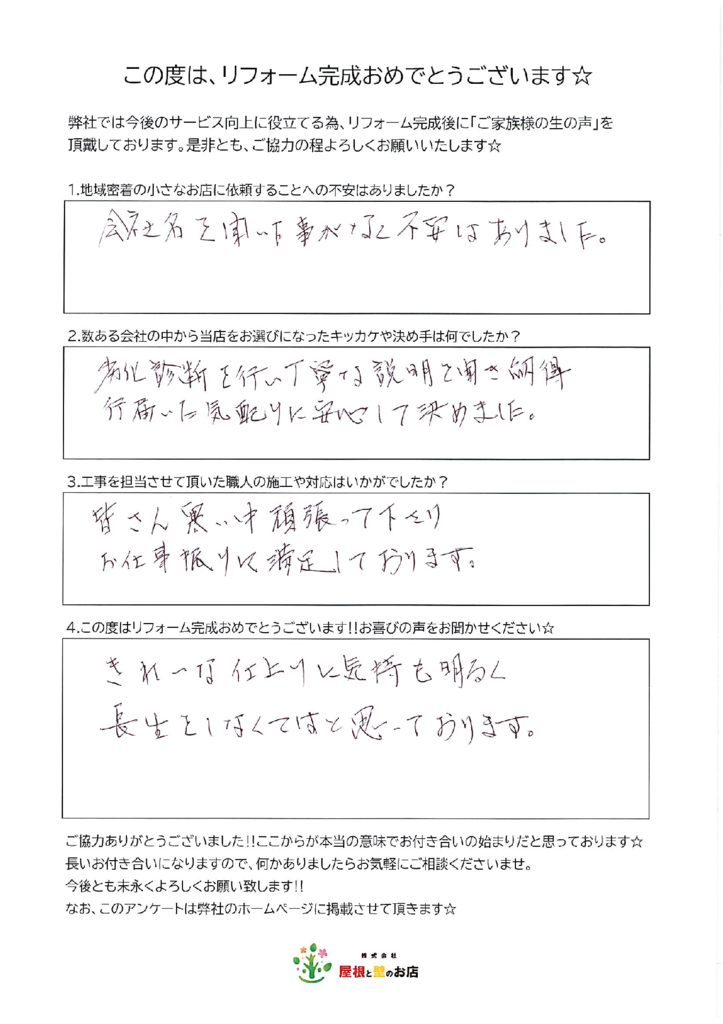 この度は、リフォーム完成おめでとうございます☆
弊社では今後のサービス向上に役立てる為、リフォーム完成後に｢ご家族様の生の声｣を
頂戴しております。是非とも、ご協力の程よろしくお願いいたします☆
1.地域密着の小さなお店に依頼することへの不安はありましたか？
会社名を聞いた事がなく不安はありました。
2.数ある会社の中から当店をお選びになったキッカケや決め手は何でしたか？
劣化診断を行い丁寧な説明を聞き納得
行届いた気配りに安心して決めました。
3.工事を担当させて頂いた職人の施工や対応はいかがでしたか？
皆さん寒い中頑張って下さり
お仕事振りに満足しております。
4.この度はリフォーム完成おめでとうございます!!お喜びの声をお聞かせください☆
きれいな仕上りに気持も明るく
長生をしなくてはと思っております。
ご協力ありがとうございました!!ここからが本当の意味でお付き合いの始まりだと思っております☆
長いお付き合いになりますので、何かありましたらお気軽にご相談くださいませ。
今後とも末永くよろしくお願い致します!!
なお、このアンケートは弊社のホームページに掲載させて頂きます☆
株式会社
屋根と壁のお店